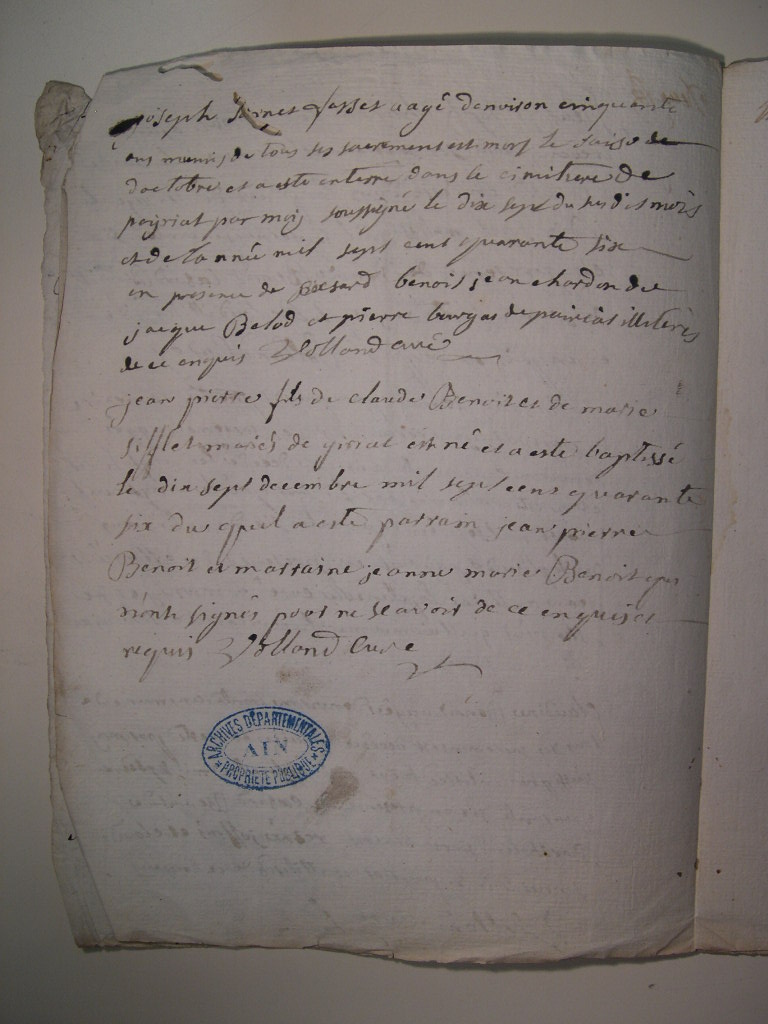 joseph fasset aagé denvison cinquante
ans munis de tous ses sacrements est mort le saise de
doctobre et a esté enterré dans le cimitiere de
peyriat par moy soussigné le dix sept du susdit mois
et de lannée mil sept cent quarante six
en presence de benoit jean chardon de
jacque Belod et pierre bourgas de illiterés
de ce enquis Volland curé
jean pierre fils de claude Benoit et de marie
mariés de est né et a esté baptissé
le dix sept decembre mil sept cens quarante
six du quel a esté parrain jean pierre
Benoit et marraine jeanne marie Benoit qui
n'ont signés pour ne scavoir de ce enquis et
requis Volland Curé
ARCHIVES DÉPARTEMENTALES
AIN
PROPRIÉTÉ PUBLIQUE